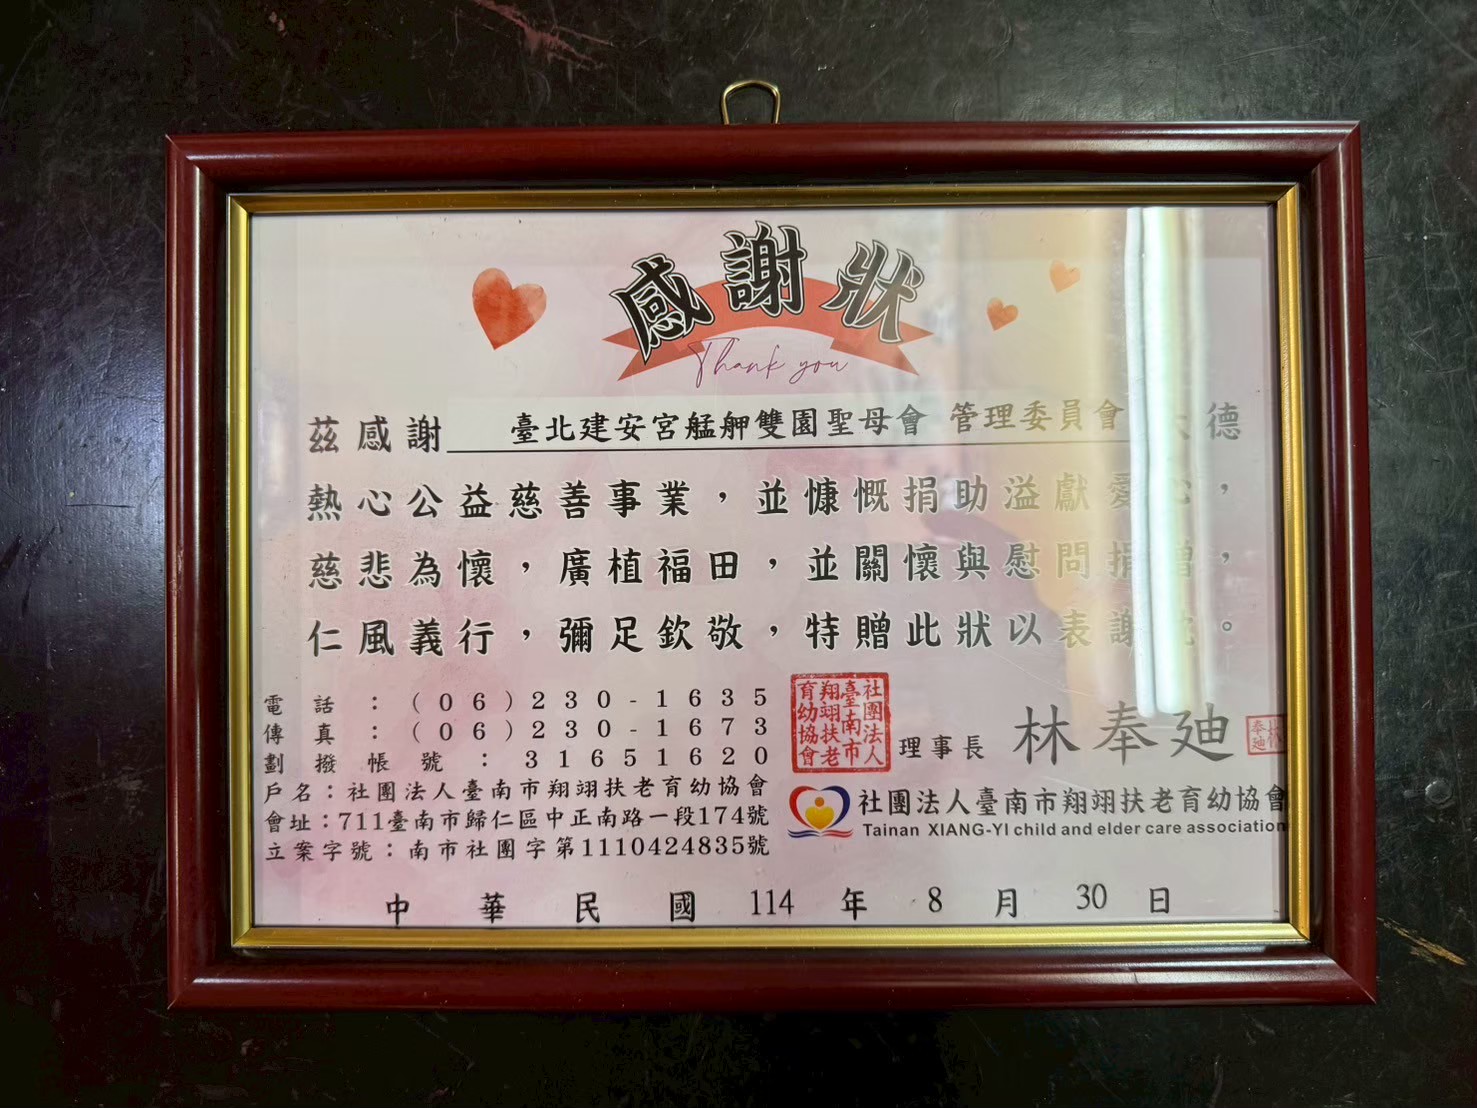 感謝狀
Thank you
茲感謝 臺北建安宮艋舺雙園聖母會 管理委員會 大德
熱心公益慈善事業，並慷慨捐助溢獻愛心，
慈悲為懷，廣植福田，並關懷與慰問捐贈，
仁風義行，彌足欽敬，特贈此狀以表謝忱。
電話：(06)230-1635
傳真：(06)230-1673
劃撥帳號：31651620
戶名：社團法人臺南市翔翊扶老育幼協會
會址：711臺南市歸仁區中正南路一段174號
立案字號：南市社團字第1110424835號
社團法人臺南市翔翊扶老育幼協會
理事長 林奉廸
社團法人臺南市翔翊扶老育幼協會
Tainan XIANG-YI child and elder care association
中華民國 114 年 8 月 30 日